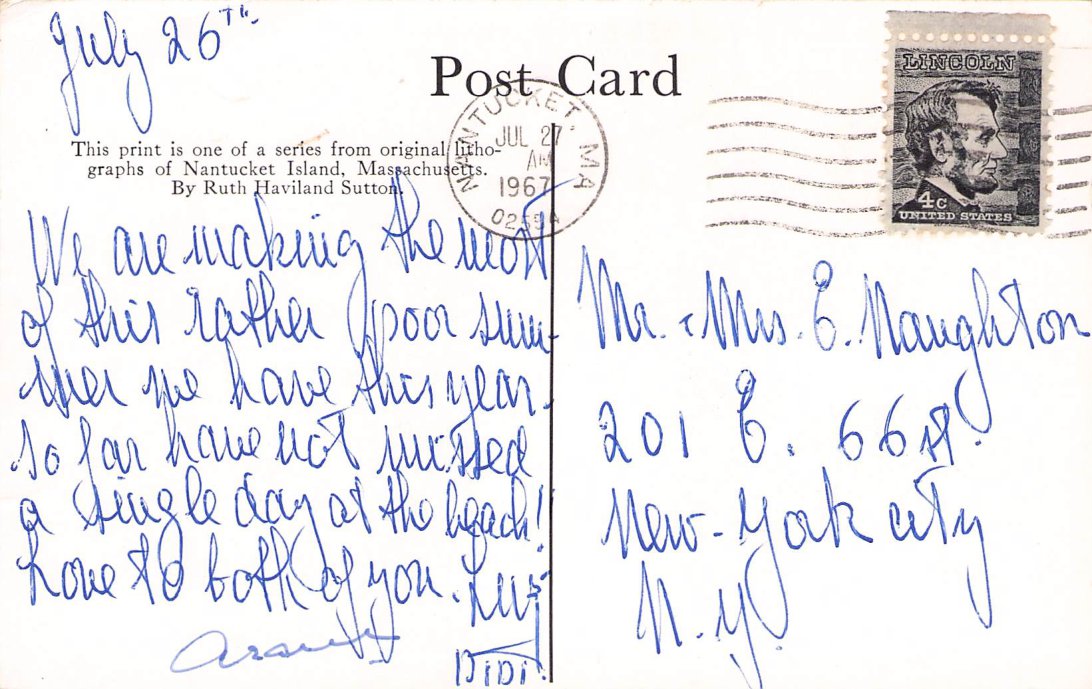 July 26TH.
Post Card
NANTUCKET, MA
JUL 27
AM
1967
02554
LINCOLN
4c
UNITED STATES
This print is one of a series from original litho-
graphs of Nantucket Island, Massachusetts.
By Ruth Haviland Sutton.
We are making the most
of this rather poor sum-
mer we have this year.
So far have not missed
a single day at the beach!
Love to both of you.
DIDI
Mr. & Mrs. E. Naughton
201 E. 66 st.
New-York city
N.Y.